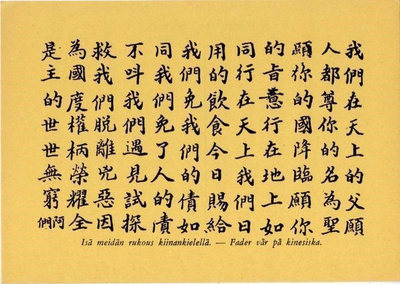 我們在天上的父願
人都尊你的名為聖
願祢的國降臨願你
的旨意行在地上如
同行在天上我們日
用的飲食今日賜給
我們免我們的債如
同我們免了人的債
不呌我們遇見試探
救我們脫離兇惡因
為國度權柄榮耀全
是主的世世無窮阿們
Isä meidän rukous kiinankielellä. — Fader vår på kinesiska.